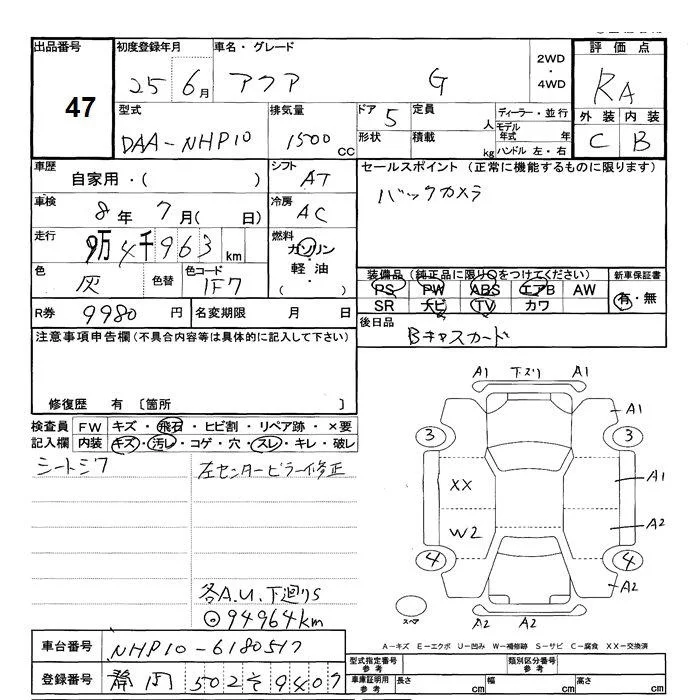 出品番号 初度登録年月 車名・グレード 2WD・4WD 評価点
47 25 6月 アクア G RA
型式 排気量 ドア 5 定員 人 ディーラー・並行 外装 内装
DAA-NHP10 1500 CC 形状 積載 kg モデル年式 年 C B
ハンドル 左・右
車歴 自家用・( ) シフト AT セールスポイント (正常に機能するものに限ります)
車検 8年 7月( 日) 冷房 AC バックカメラ
走行 9万4千963 km 燃料 ガソリン・軽油・( )
色 灰 色替 色コード 1F7 装備品 (純正品に限り○をつけてください) 新車保証書
PS PW ABS エアB AW 有・無
SR ナビ TV カワ
R券 9980円 名変期限 月 日 後日品 Bキャスカード
注意事項申告欄(不具合内容等は具体的に記入して下さい)
修復歴 有 〔箇所 〕
検査員記入欄 FW キズ・飛石・ヒビ割・リペア跡・×要
内装 キズ・汚レ・コゲ・穴・スレ・キレ・破レ
シートシワ 左センターピラー修正
各A.U.下廻りS
◎94964km
A1 下スリ A1
A1
3 3
XX A1
W2 A2
4 4
A2
A2 A2
スペア
A-キズ E-エクボ U-凹み W-補修跡 S-サビ C-腐食 XX-交換済
車台番号 NHP10-6180517 型式指定番号 参考 類別区分番号 参考
登録番号 静岡 502 そ 9407 車庫証明用 参考 長さ cm 幅 cm 高さ cm